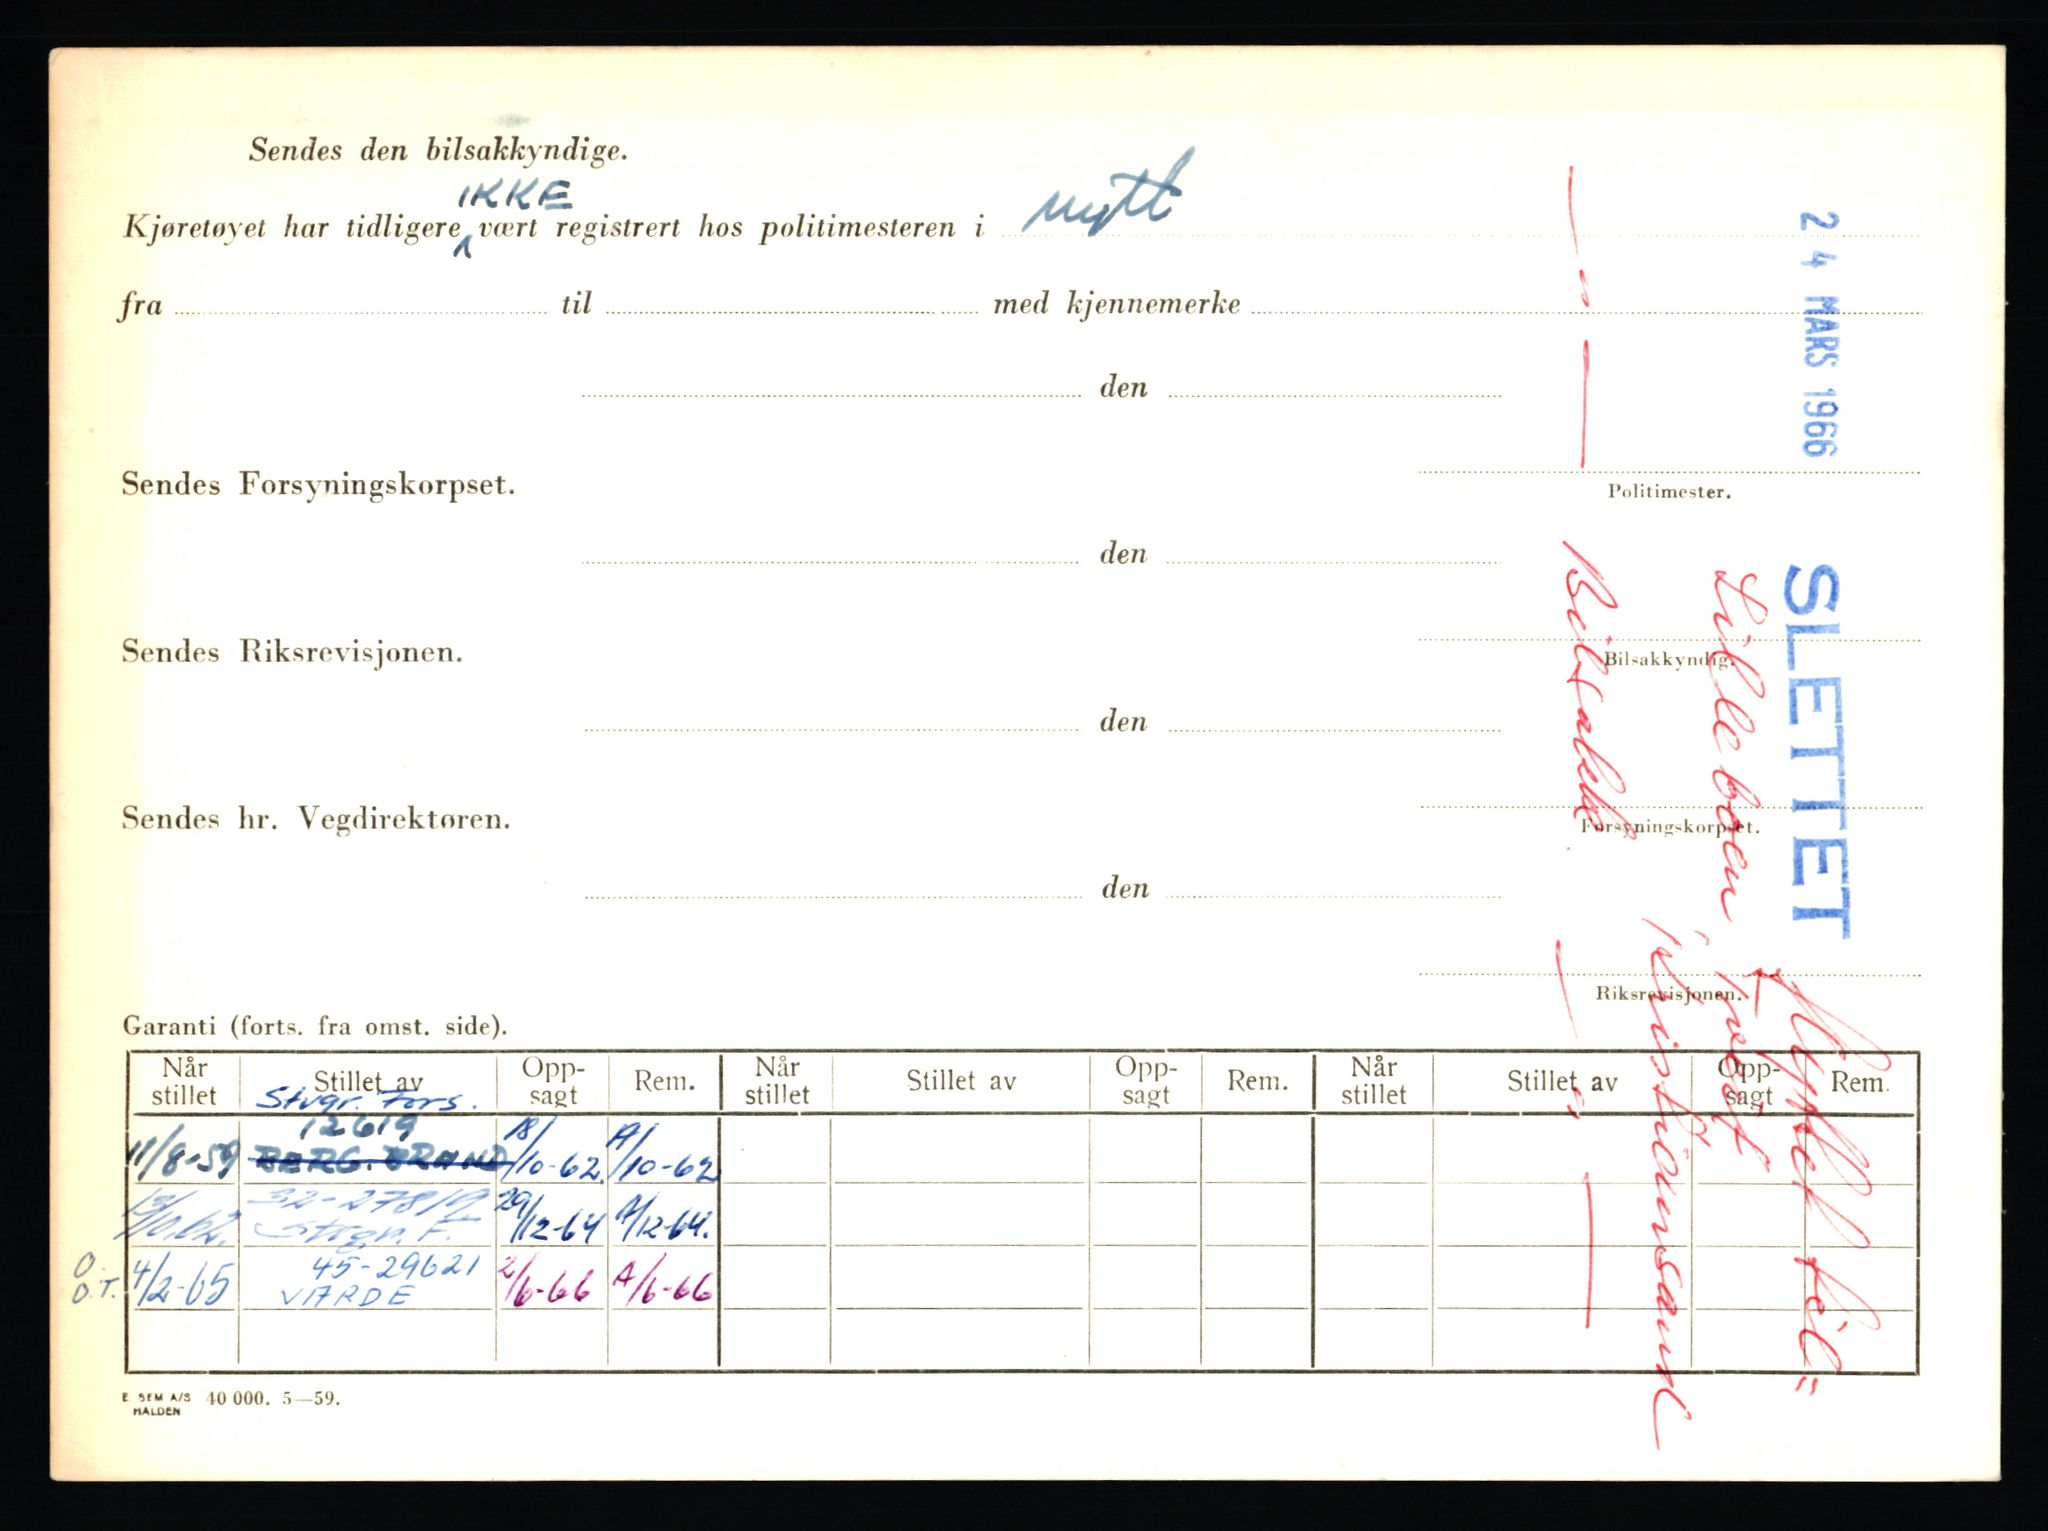 Sendes den bilsakkyndige.
IKKE
Kjøretøyet har tidligere vært registrert hos politimesteren i nytt
fra til med kjennemerke
den
Politimester.
Sendes Forsyningskorpset.
den
Bilsakkyndig.
Sendes Riksrevisjonen.
den
Forsyningskorpset.
Sendes hr. Vegdirektøren.
den
Riksrevisjonen.
24 MARS 1966
SLETTET
Lilleboen, Tveit
Kristiansand
Bilsakk.
Garanti (forts. fra omst. side).
Når stillet Stillet av Opp-sagt Rem. Når stillet Stillet av Opp-sagt Rem. Når stillet Stillet av Opp-sagt Rem.
Stvgr. Fors.
12619
11/8-59 BERG. BRAND 18/10-62 A/10-62
13/10.62. 32-27819 Stvgr. F. 29/12-64 A/12-64.
O. O.T. 4/2-65 45-29621 VARDE 2/6-66 A/6-66
E. SEM A/S HALDEN 40 000. 5—59.